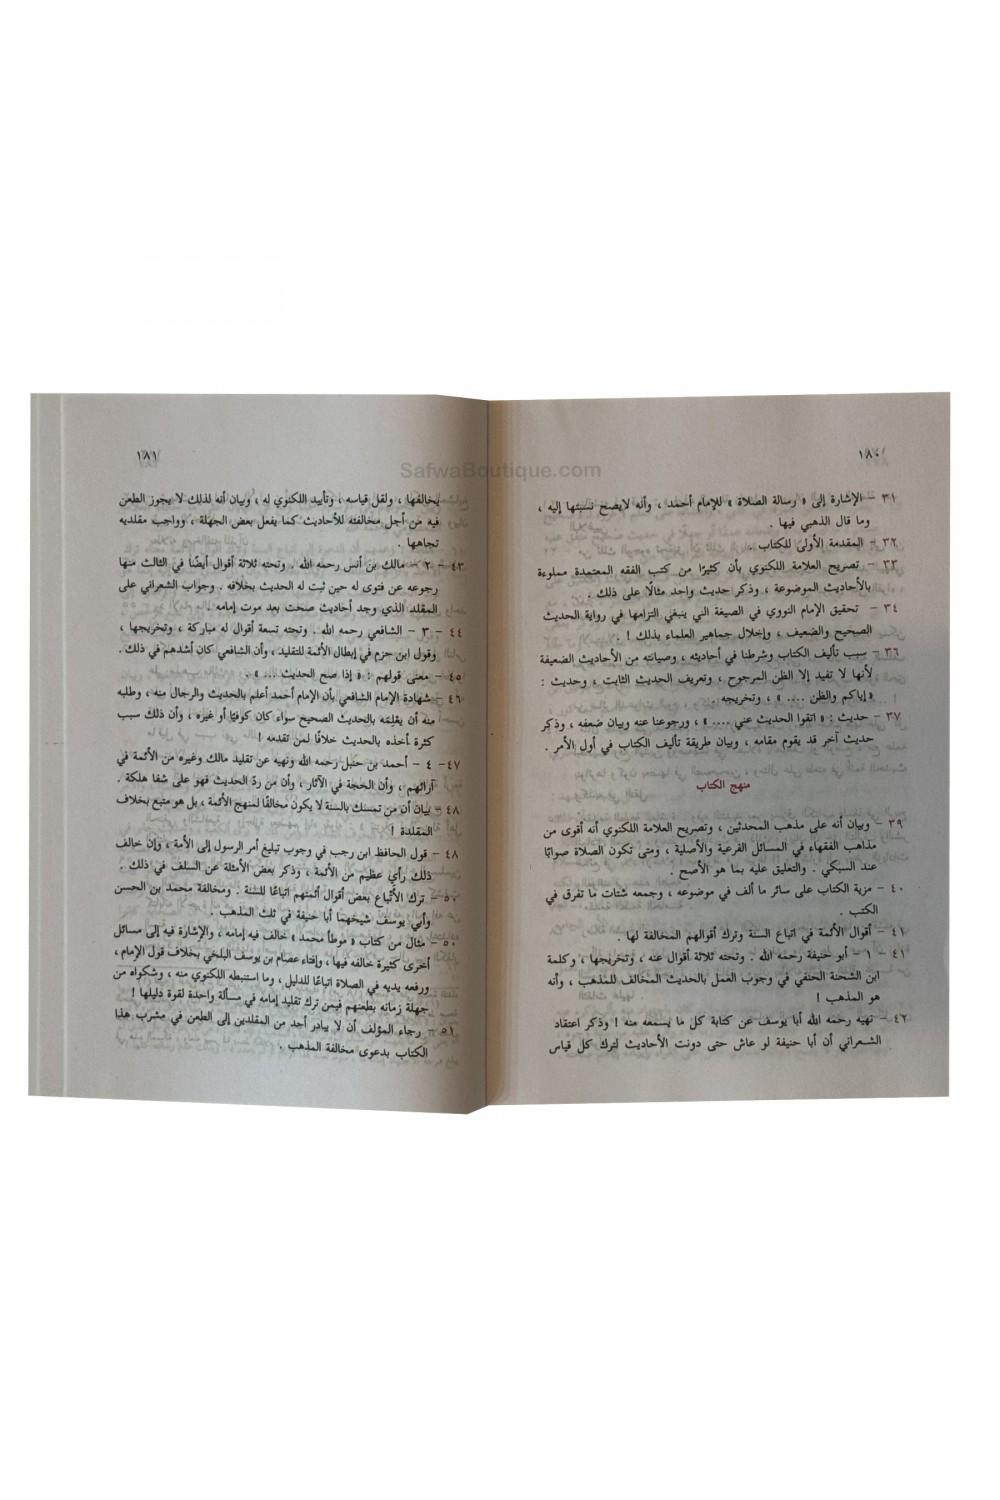 SafwaBoutique.com
١٨٠
٣١ - الإشارة إلى « رسالة الصلاة » للإمام أحمد ، وأنه لايصح نسبتها إليه ،
وما قال الذهبي فيها .
٣٢ - المقدمة الأولى للكتاب .
٣٣ - تصريح العلامة اللكنوي بأن كثيرًا من كتب الفقه المعتمدة مملوءة
بالأحاديث الموضوعة ، وذكر حديث واحد مثالًا على ذلك .
٣٤ - تحقيق الإمام النووي في الصيغة التي ينبغي التزامها في رواية الحديث
الصحيح والضعيف ، وإخلال جماهير العلماء بذلك ! .
٣٦ - سبب تأليف الكتاب وشرطنا في أحاديثه ، وصيانته من الأحاديث الضعيفة
لأنها لا تفيد إلا الظن المرجوح ، وتعريف الحديث الثابت ، وحديث :
« إياكم والظن .... » ، وتخريجه .
٣٧ - حديث : « اتقوا الحديث عني .... » ، ورجوعنا عنه وبيان ضعفه ، وذكر
حديث آخر قد يقوم مقامه ، وبيان طريقة تأليف الكتاب في أول الأمر .
منهج الكتاب
٣٩ - وبيان أنه على مذهب المحدثين ، وتصريح العلامة اللكنوي أنه أقوى من
مذاهب الفقهاء في المسائل الفرعية والأصلية ، ومتى تكون الصلاة صوابًا
عند السبكي . والتعليق عليه بما هو الأصح .
٤٠ - مزية الكتاب على سائر ما ألف في موضوعه ، وجمعه شتات ما تفرق في
الكتب .
٤١ - أقوال الأئمة في اتباع السنة وترك أقوالهم المخالفة لها .
٤١ - ١ - أبو حنيفة رحمه الله . وتحته ثلاثة أقوال عنه ، وتخريجها ، وكلمة
ابن الشحنة الحنفي في وجوب العمل بالحديث المخالف للمذهب ، وأنه
هو المذهب !
٤٢ - نهيه رحمه الله أبا يوسف عن كتابة كل ما يسمعه منه ! وذكر اعتقاد
الشعراني أن أبا حنيفة لو عاش حتى دونت الأحاديث لترك كل قياس
١٨١
يخالفها ، ولقل قياسه ، وتأييد اللكنوي له ، وبيان أنه لذلك لا يجوز الطعن
فيه من أجل مخالفته للأحاديث كما يفعل بعض الجهلة ، وواجب مقلديه
تجاهها .
٤٣ - ٢ - مالك بن أنس رحمه الله . وتحته ثلاثة أقوال أيضًا في الثالث منها
رجوعه عن فتوى له حين ثبت له الحديث بخلافه . وجواب الشعراني على
المقلد الذي وجد أحاديث صحت بعد موت إمامه .
٤٤ - ٣ - الشافعي رحمه الله . وتحته تسعة أقوال له مباركة ، وتخريجها ،
وقول ابن حزم في إبطال الأئمة للتقليد ، وأن الشافعي كان أشدهم في ذلك .
٤٥ - معنى قولهم : « إذا صح الحديث ... » .
٤٦ - شهادة الإمام الشافعي بأن الإمام أحمد أعلم بالحديث والرجال منه ، وطلبه
منه أن يعلمه بالحديث الصحيح سواء كان كوفيًا أو غيره ، وأن ذلك سبب
كثرة أخذه بالحديث خلافًا لمن تقدمه !
٤٧ - ٤ - أحمد بن حنبل رحمه الله ونهيه عن تقليد مالك وغيره من الأئمة في
آرائهم ، وأن الحجة في الآثار ، وأن من ردّ الحديث فهو على شفا هلكة .
٤٨ - بيان أن من تمسك بالسنة لا يكون مخالفًا لمنهج الأئمة ، بل هو متبع بخلاف
المقلدة !
٤٨ - قول الحافظ ابن رجب في وجوب تبليغ أمر الرسول إلى الأمة ، وإن خالف
ذلك رأي عظيم من الأئمة ، وذكر بعض الأمثلة عن السلف في ذلك .
٥٠ - ترك الأتباع بعض أقوال أئمتهم اتباعًا للسنة . ومخالفة محمد بن الحسن
وأبي يوسف شيخهما أبا حنيفة في ثلث المذهب .
٥٠ - مثال من كتاب « موطأ محمد » خالف فيه إمامه ، والإشارة فيه إلى مسائل
أخرى كثيرة خالفه فيها ، وإفتاء عصام بن يوسف البلخي بخلاف قول الإمام ،
ورفعه يديه في الصلاة اتباعًا للدليل ، وما استنبطه اللكنوي منه ، وشكواه من
جهلة زمانه بطعنهم فيمن ترك تقليد إمامه في مسألة واحدة لقوة دليلها !
٥١ - رجاء المؤلف أن لا يبادر أحد من المقلدين إلى الطعن في مشرب هذا
الكتاب بدعوى مخالفة المذهب .